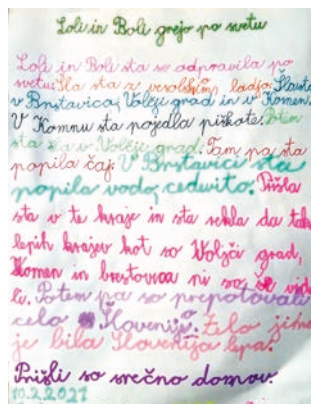 Loli in Boli grejo po svetu
Loli in Boli sta se odpravila po
svetu. Šla sta z vesoljsko ladjo. Šla sta
v Brstavica, Volčji grad in v Komen.
V Komnu sta pojedla piškote. Potem
sta šla v Volčji grad. Tam pa sta
popila čaj. V Brstavici sta
popila vodo, cedevito. Prišla
sta v te kraje in sta rekla da tak
lepih krajev kot so Voljči grad,
Komen in brestovica ni so še vide
li. Potem pa so prepotovali
celo Slovenijo. Zelo jima
je bila Slovenija lepa.
Prišli so srečno domov.
10.2.2021